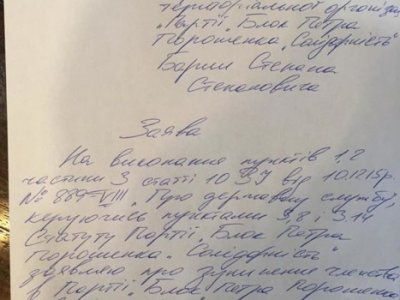 територіальної організації
„Партії „Блок Петра
Порошенка „Солідарність"
Барни Степана
Степановича
Заява
На виконання пунктів 1,2
частини 3 статті 10 ЗУ від 10.12.15р.
№ 889-VIII „Про державну службу",
керуючись пунктами 3.8 і 3.14
Статуту Партії „Блок Петра
Порошенка „Солідарність"
заявляю про зупинення членства
в Партії „Блок Петра Порошенка